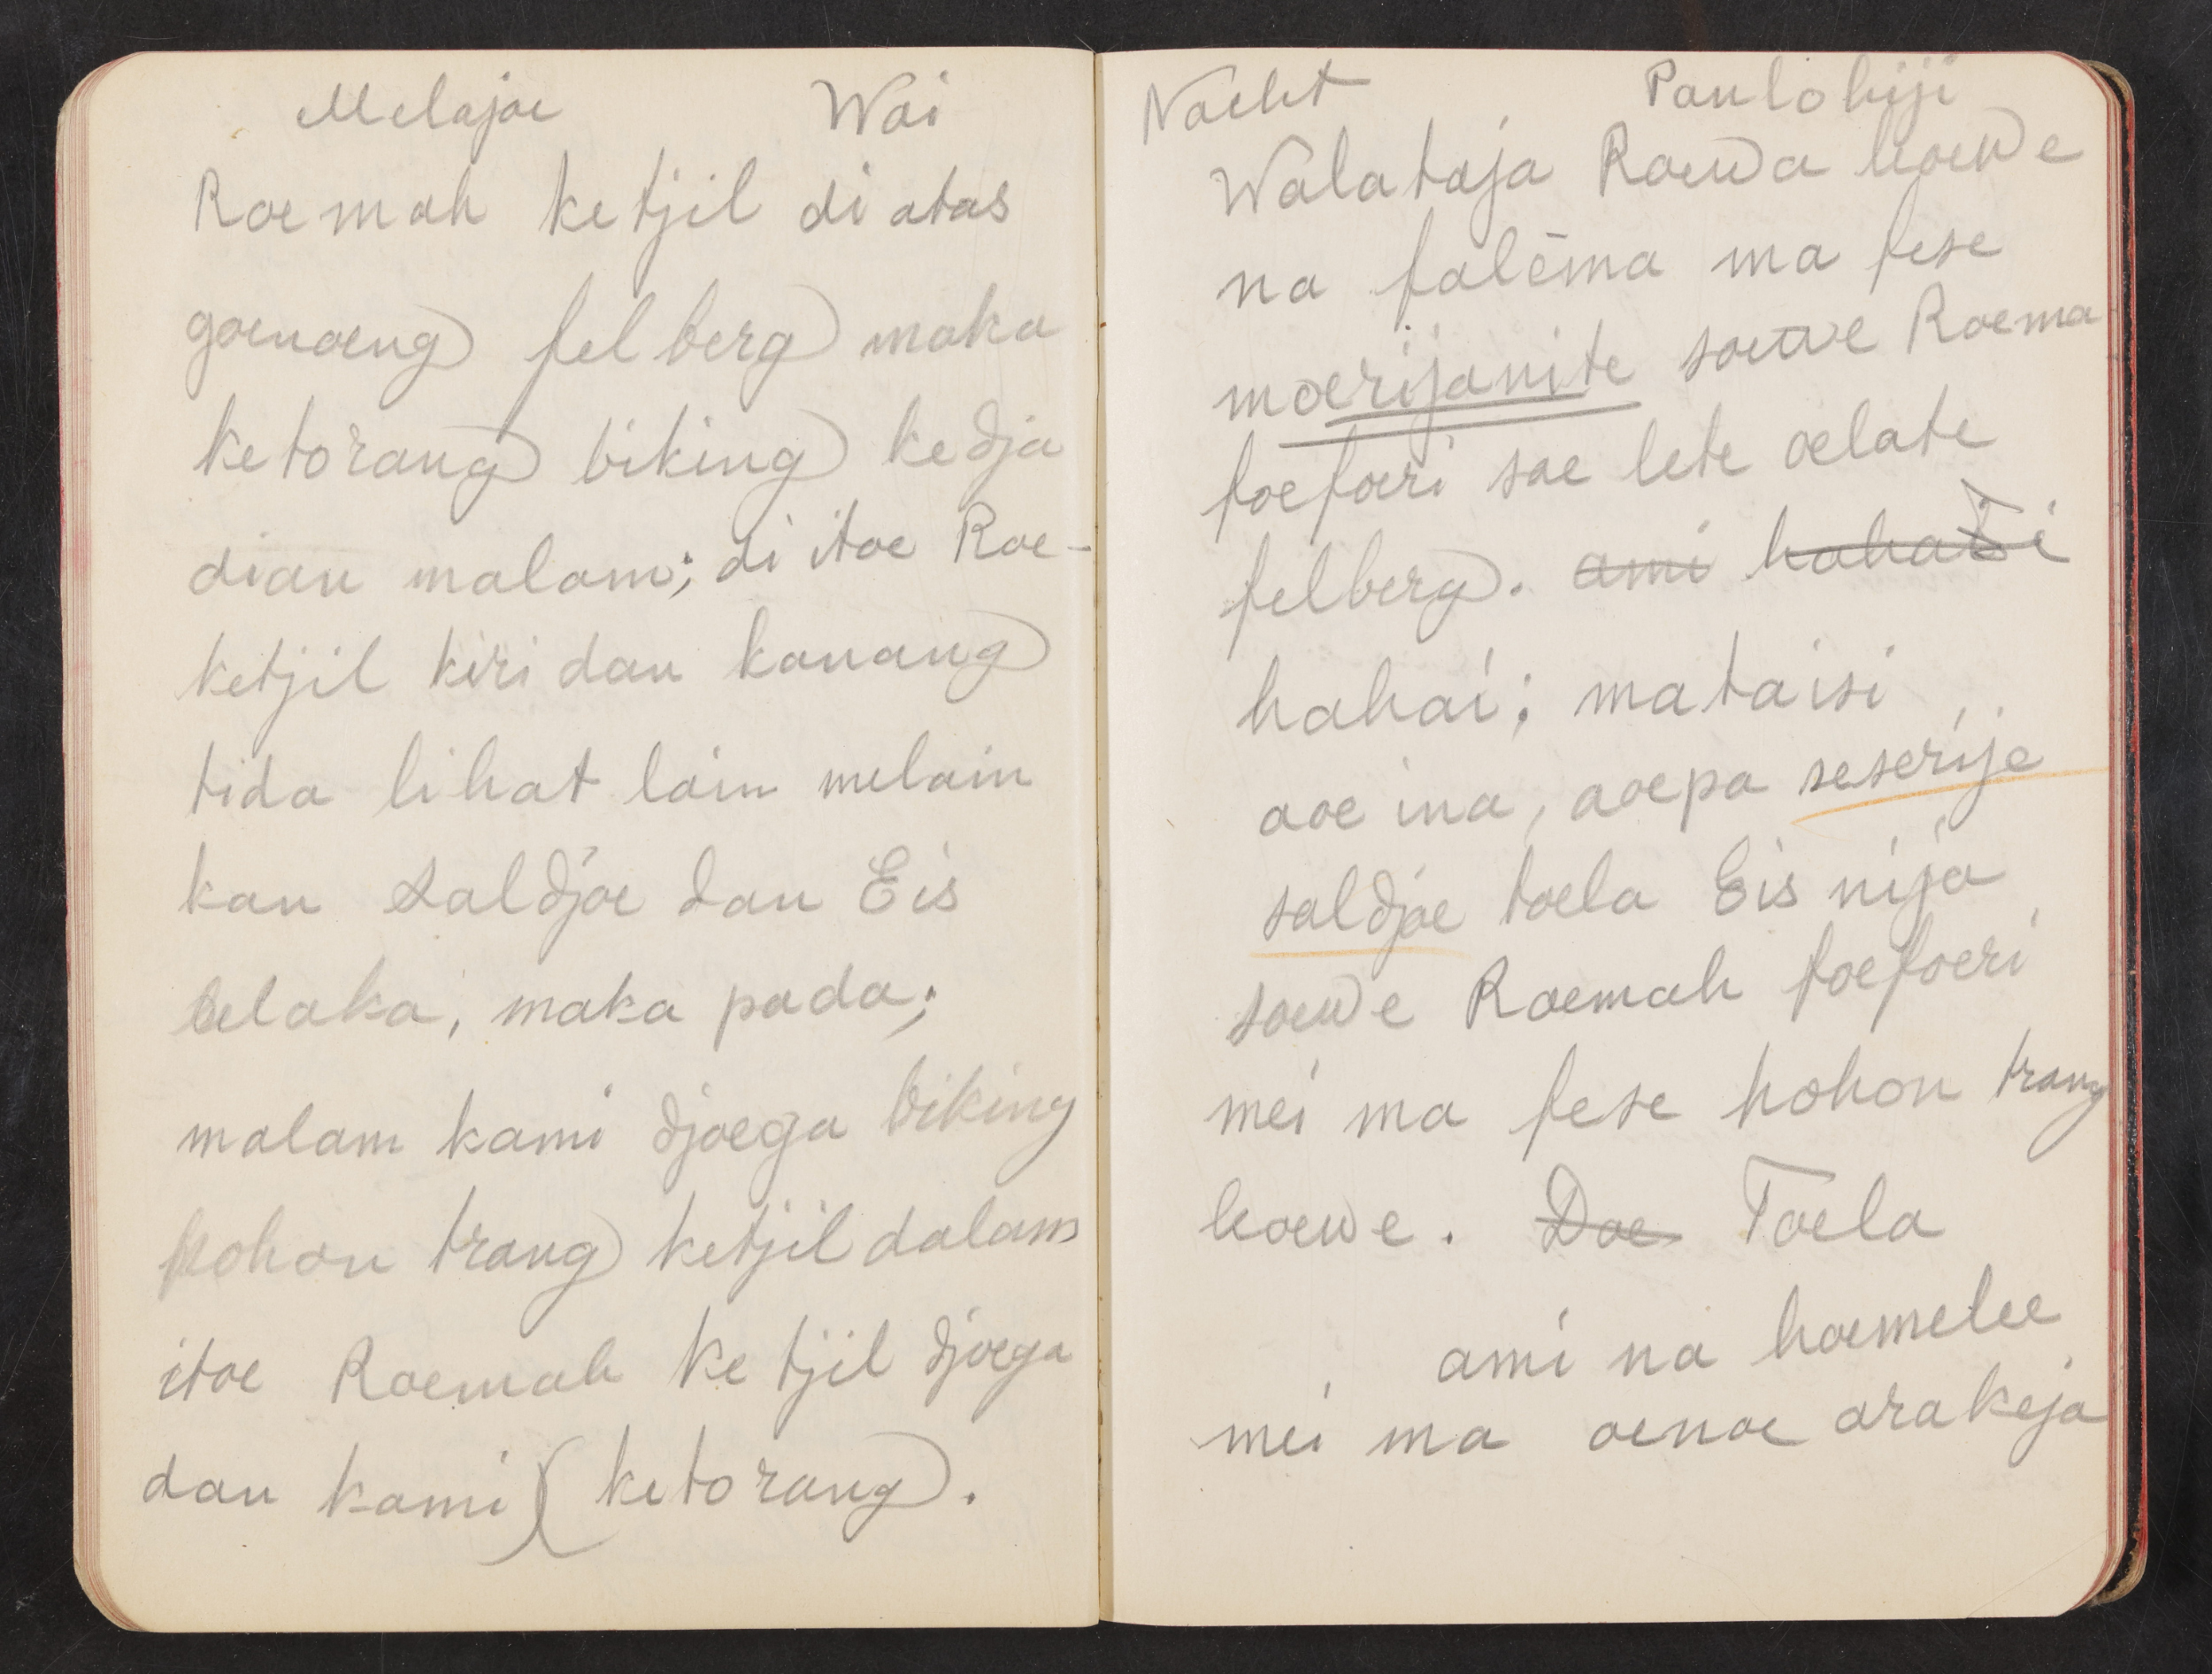 Melajoe Wai
Roemah ketjil di atas
goenoeng felberg maka
ketorang biking kedja
dian malam; di itoe Roe-
ketjil kiri dan kanang
tida lihat lain melain
kan saldjoe dan Eis
belaka, maka pada;
malam kami djoega biking
pohon trang ketjil dalam
itoe Roemah ketjil djoega
dan kami (ketorang).
Nacht Paulohiji
Walataja Roewa hoewe
na falēma ma fese
moerijanite soewe Roema
foefoeri soe lete oelate
felberg. ami hahatsi
hahai; mataisi
aoe ina, aoepa seserije
saldjoe toela Eis nija
soewe Roemah foefoeri
mei ma fese hohon trang
hoewe. Doe Toela
ami na hoemelee
mei ma oenoe arakeja